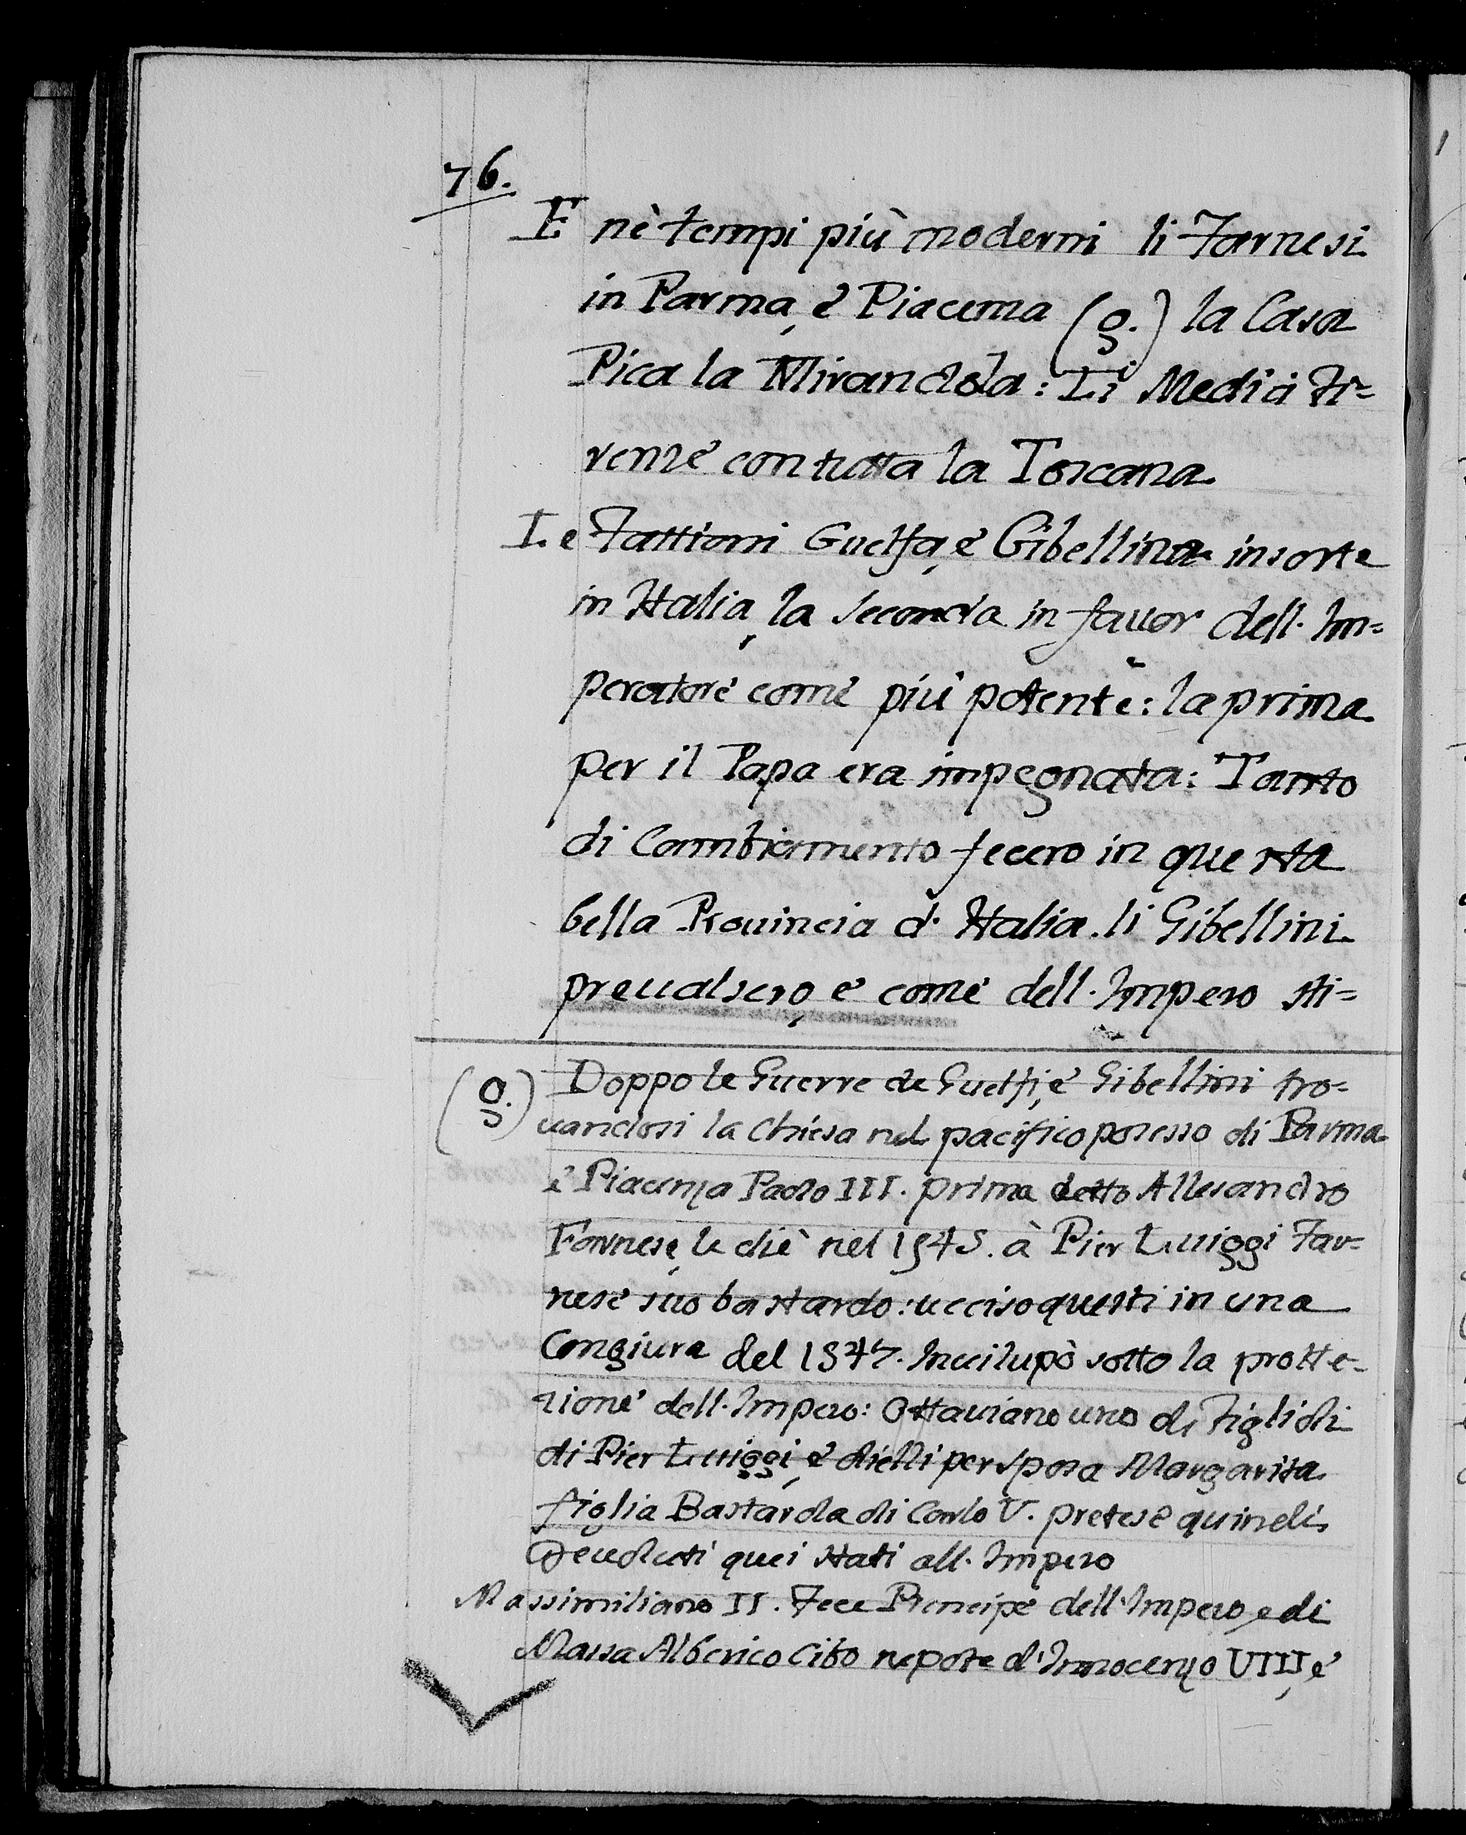 76.
E nè tempi più moderni li Farnesi
in Parma, è Piacenza (g.) la Casa
Pica la Mirandola: Li Medici Fi=
renzè con tutta la Toscana
Le Fattioni Guelfa, è Gibellina insorte
in Italia, la seconda in fauor dell. Im=
peratorè comè più potente: la prima
per il Papa era impegnata: Tanto
di Cambiamento fecero in questa
bella Prouincia d. Italia. li Gibellini
preualsero, e comè dell. Impero sti=
(g.) Doppo le Guerre de Guelfi, è Gibellini tro=
uandosi la Chiesa nel pacifico posesso di Parma
è Piacenza Paolo III. prima detto Allesandro
Farnese, le diè nel 1545. à Pier Luiggi Far=
nesè suo bastardo: ucciso questi in una
Congiura del 1547. Inuilupò sotto la protte=
zionè dell. Impero: Ottauiano uno di Figlioli
di Pier Luiggi, è dielli per sposa Margarita
figlia Bastarda di Carlo V. pretesè quindi
deuoluti quei stati all. Impero
Massimiliano II. Fece Prencipè dell. Impero, e di
Massa Alberico Cibo nepote d'Innocenzo VIII, è